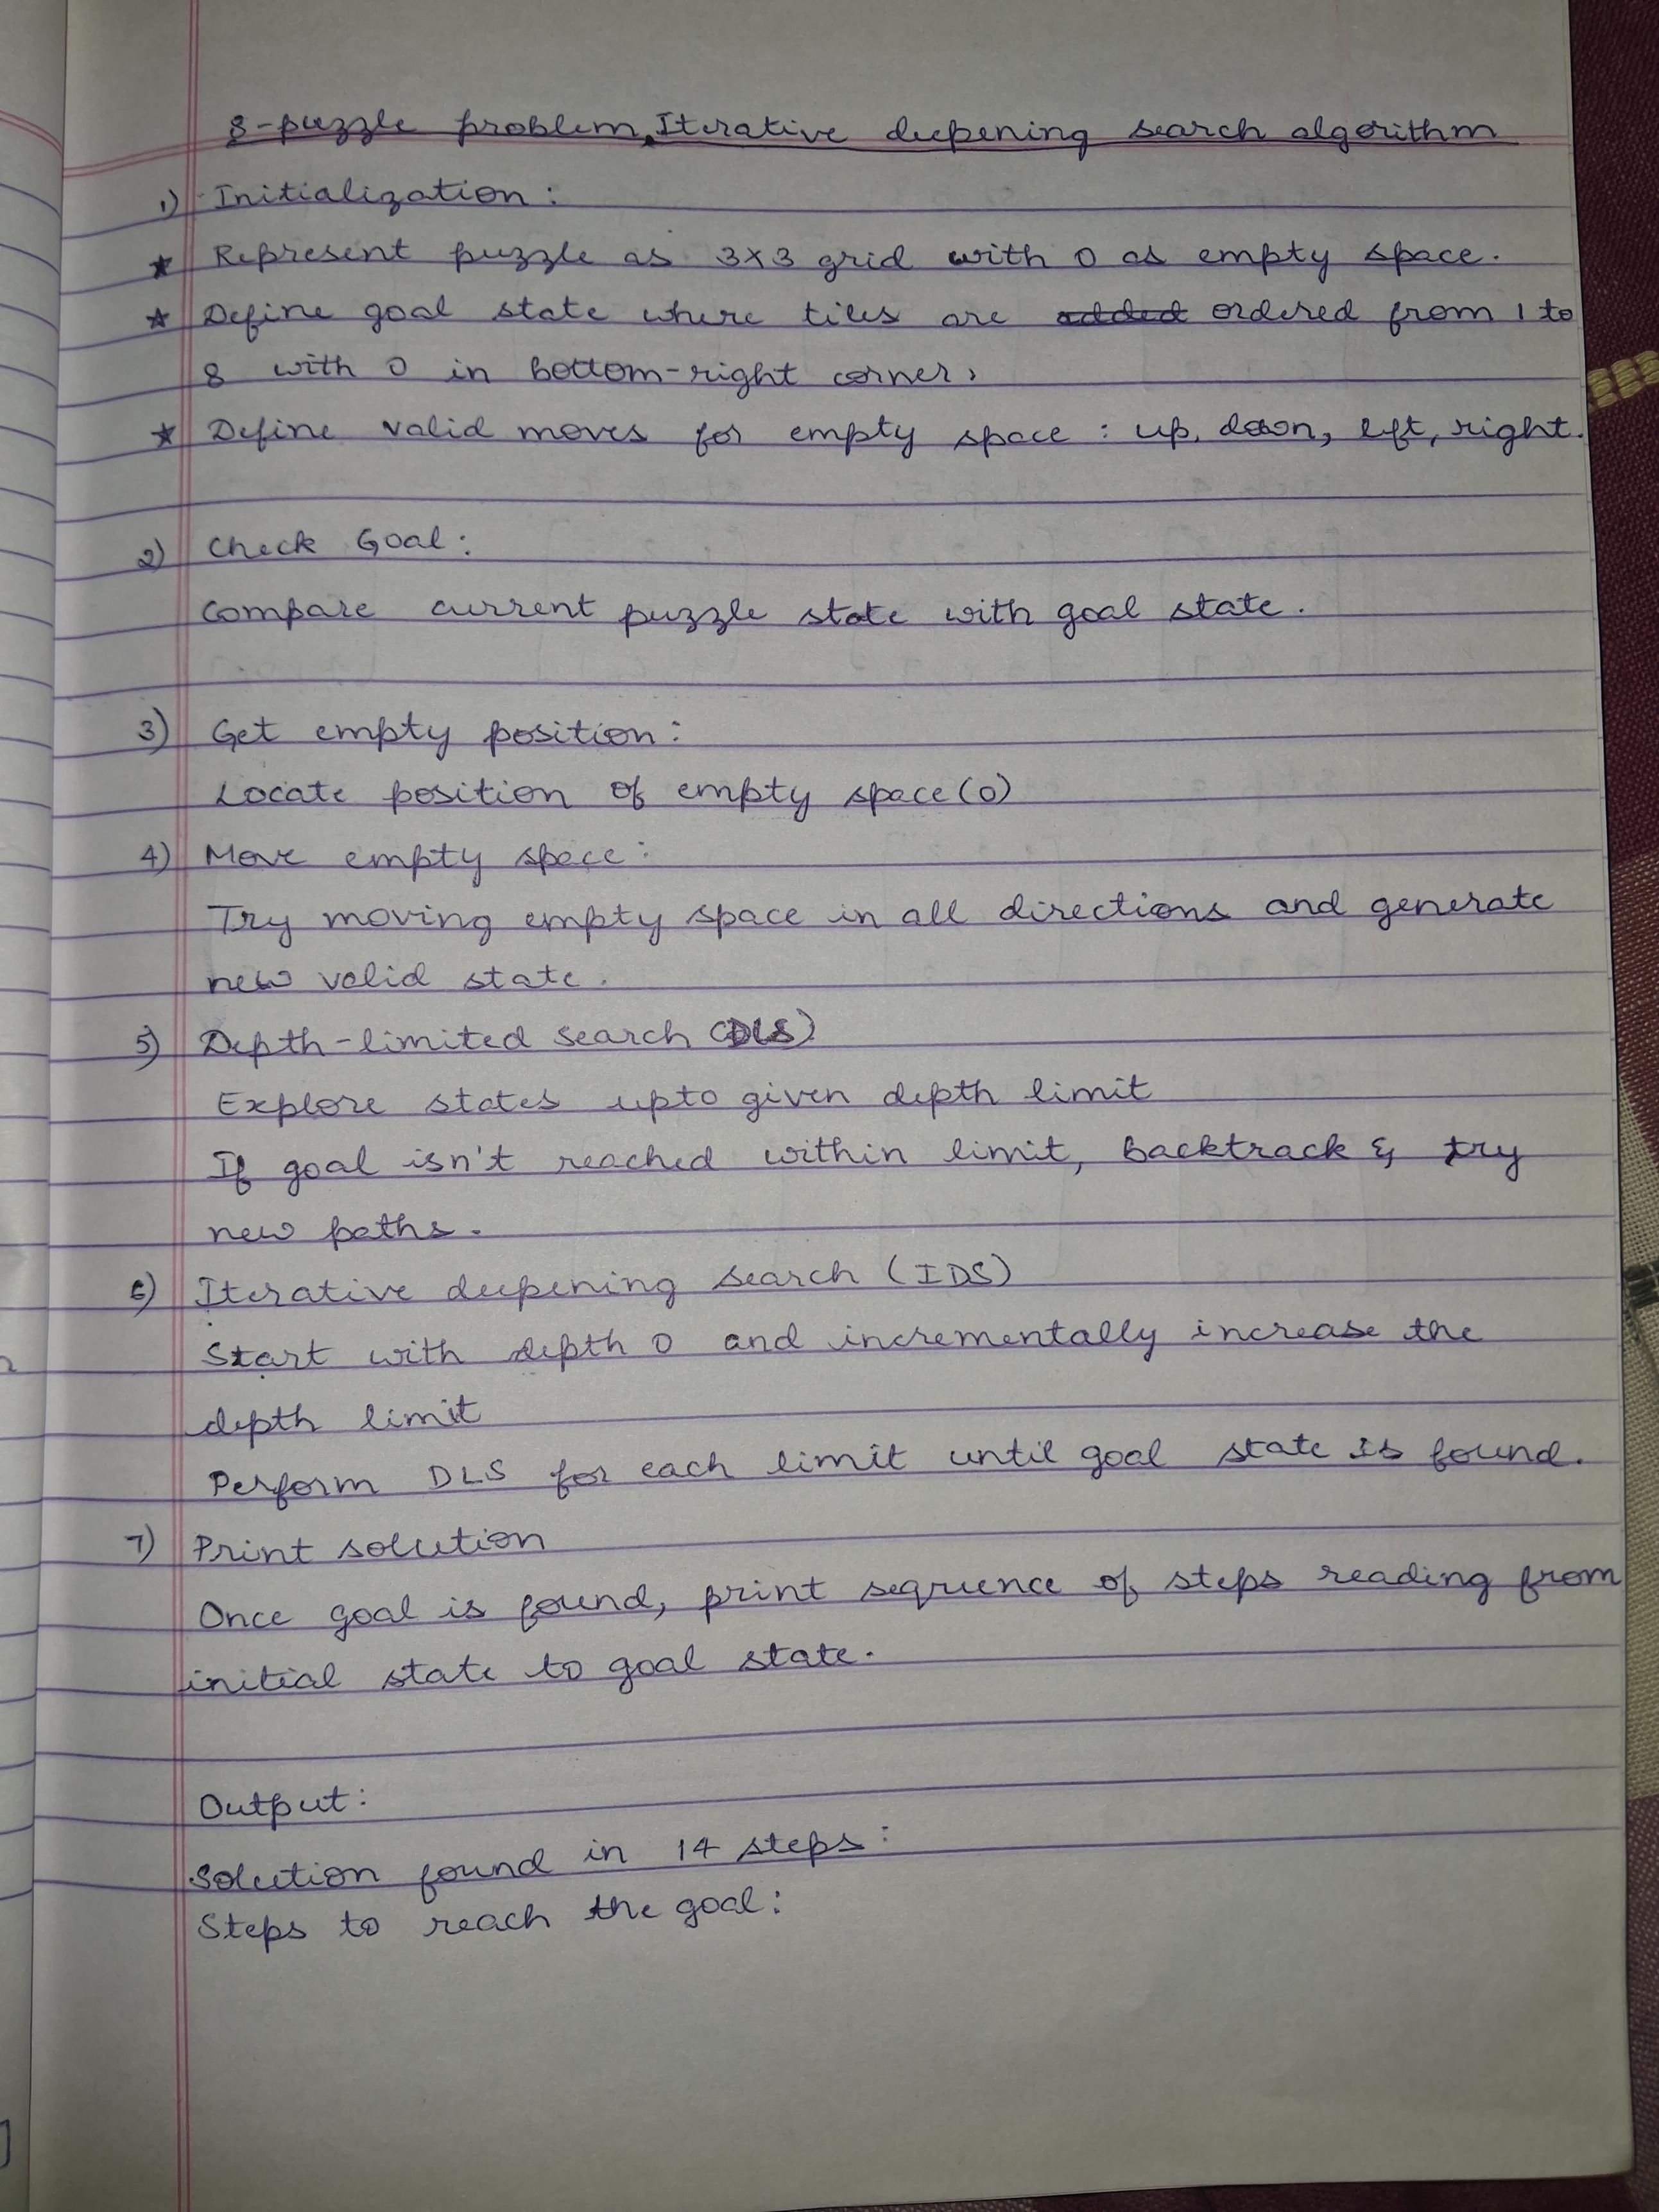 8-puzzle problem, Iterative deepening search algorithm
1) Initialization:
★ Represent puzzle as 3x3 grid with 0 as empty space.
★ Define goal state where tiles are added ordered from 1 to
8 with 0 in bottom-right corner,
★ Define valid moves for empty space: up, down, left, right.
2) Check Goal:
Compare current puzzle state with goal state.
3) Get empty position:
Locate position of empty space(0)
4) Move empty space:
Try moving empty space in all directions and generate
new valid state.
5) Depth-limited search (DLS)
Explore states upto given depth limit
If goal isn't reached within limit, backtrack & try
new paths.
6) Iterative deepening search (IDS)
Start with depth 0 and incrementally increase the
depth limit
Perform DLS for each limit until goal state is found.
7) Print solution
Once goal is found, print sequence of steps reading from
initial state to goal state.
Output:
Solution found in 14 steps:
Steps to reach the goal: